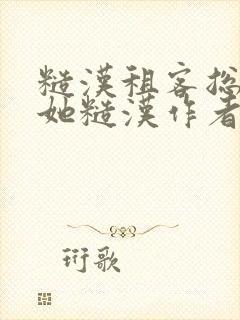 糙漢租客總
她糙漢作者
珩歌